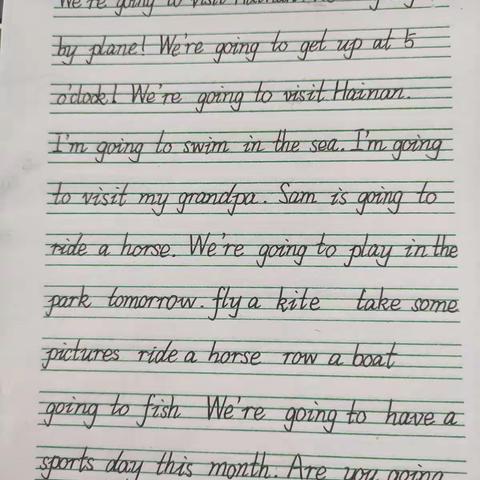 We're going to visit Hainan.
by plane! We're going to get up at 5
o'clock! We're going to visit Hainan.
I'm going to swim in the sea. I'm going
to visit my grandpa. Sam is going to
ride a horse. We're going to play in the
park tomorrow. fly a kite take some
pictures ride a horse row a boat
going to fish We're going to have a
sports day this month. Are you going